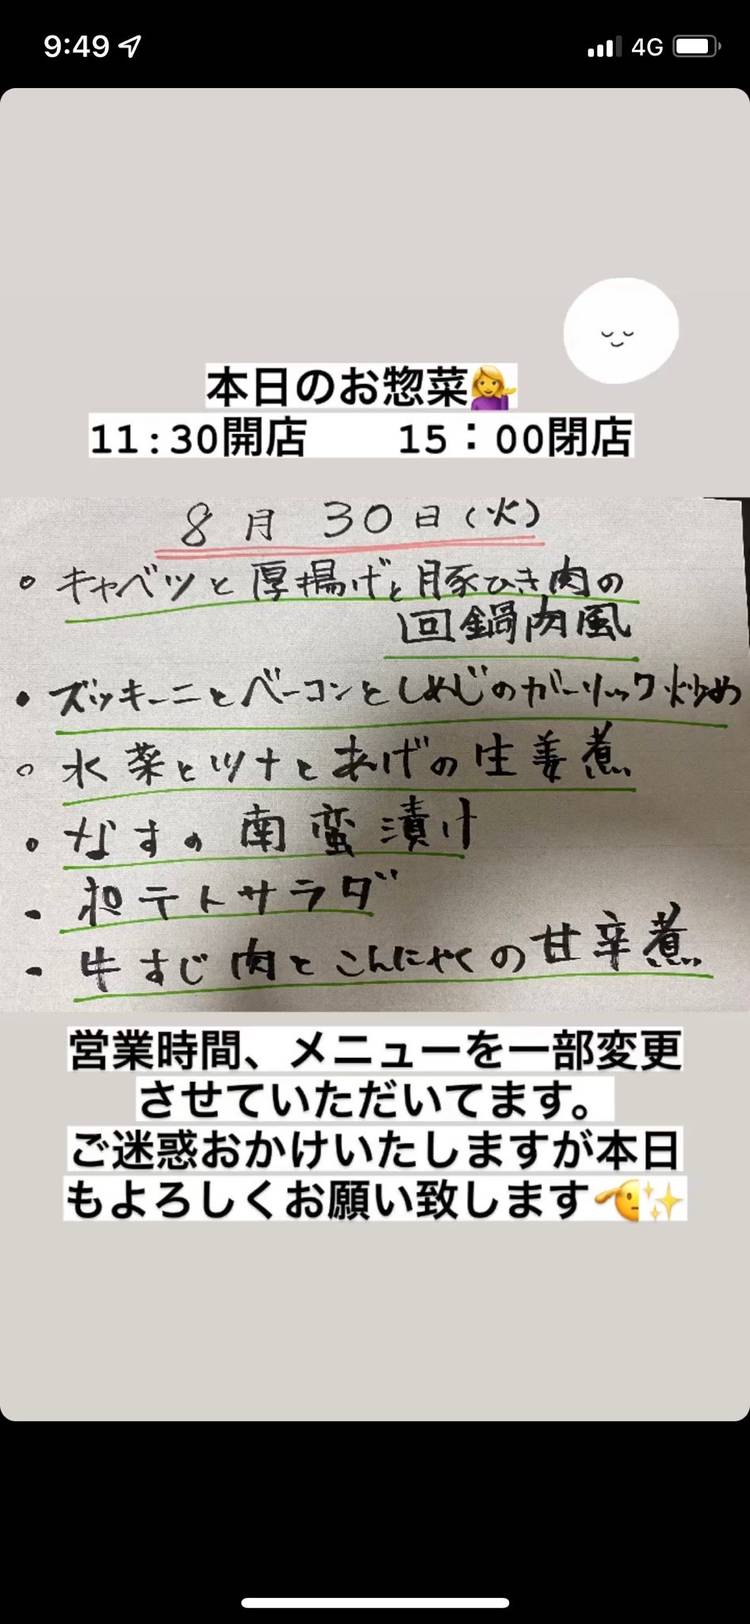 9:49
4G
本日のお惣菜💁‍♀️
11:30開店 15：00閉店
8月30日(火)
○ キャベツと厚揚げと豚ひき肉の
回鍋肉風
• ズッキーニとベーコンとしめじのガーリック炒め
○ 水菜とツナとあげの生姜煮
• なすの南蛮漬け
- ポテトサラダ
- 牛すじ肉とこんにゃくの甘辛煮
営業時間、メニューを一部変更
させていただいてます。
ご迷惑おかけいたしますが本日
もよろしくお願い致します🫡✨